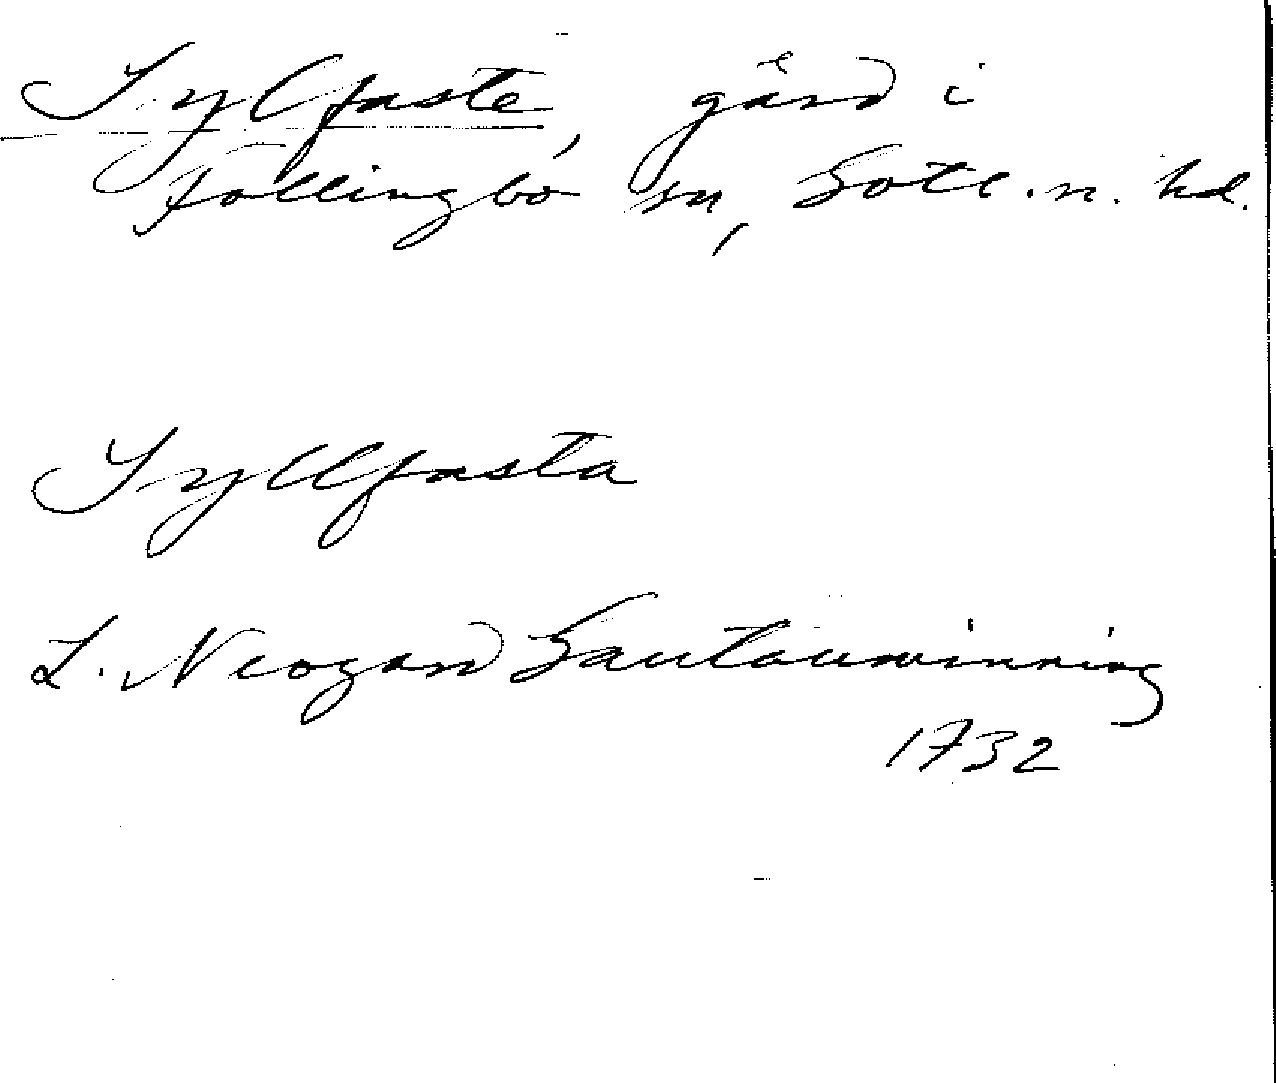 Sylfaste, gård i
Follingbo sn, Gotl. n. hd.
Syllfasta
L. Neogard Gautauminning
1732